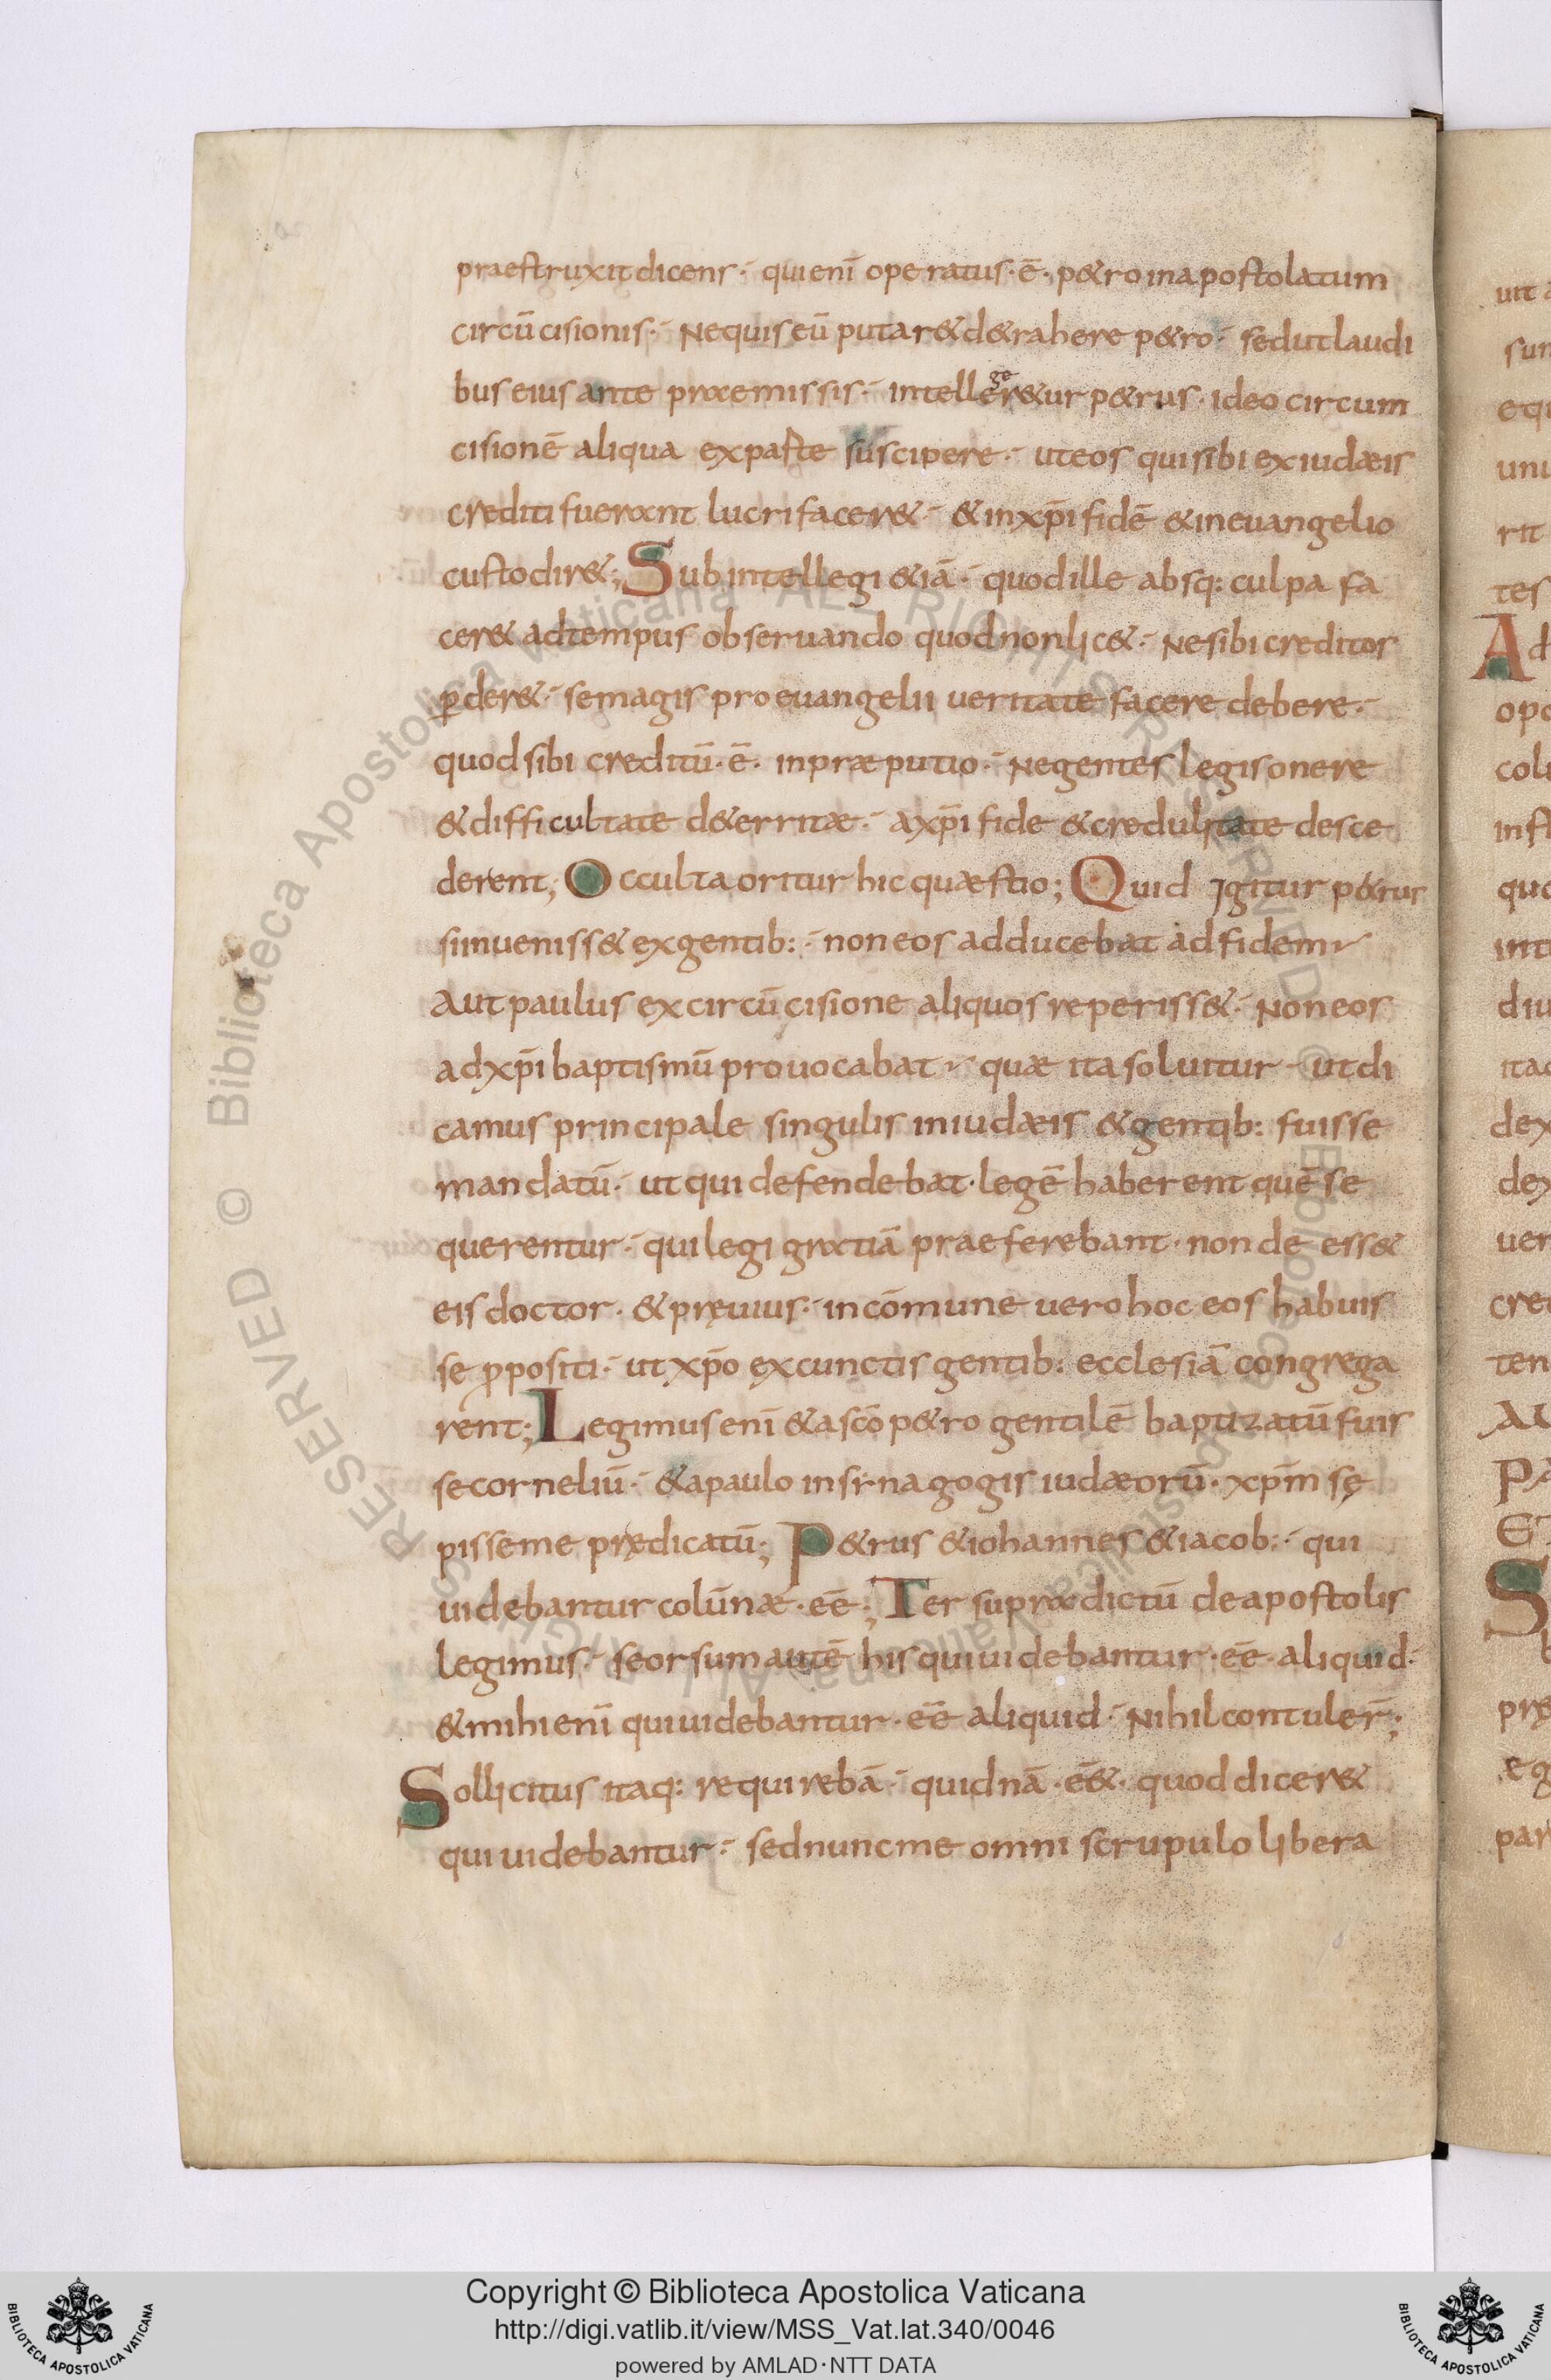 praestruxit dicens·- qui enī operatus·ē· p&ro in apostolatum
circūcisionis·- Ne quis eū putar& d&rahere p&ro·- sed ut laudi
bus eius ante praemissis·- intellegere&ur p&rus· ideo circum
cisionē aliqua ex paste suscipere·- ut eos qui sibi ex iudæis
crediti fuerant lucri facere&·- & in xp̄i fidē & in euangelio
custodir&; Sub intellegi &iā·- quod ille absq: culpa fa
cer& ad tempus obseruando quod non lic&·- Ne sibi creditos
p̱der&·- se magis pro euangelii ueritate facere debere·-
quod sibi creditū·ē· in præputio·- Ne gentes legis onere
& difficultate d&erritæ·- a xp̄i fide & credulitate desce
derent; Occulta oritur hic quæstio; Quid igitur p&rus
si inueniss& ex gentib:·- non eos adducebat ad fidem
Aut paulus ex circūcisione aliquos reperiss&·- Non eos
ad xp̄i baptismū prouocabat quæ ita soluitur·- ut di
camus principale singulis in iudæis & gentib: fuisse
mandatū·- ut qui defendebat·legē haberent quē se
querentur·- qui legi gratiā praeferebant· non de ess&
eis doctor· & pręuius·- in cōmune uero hoc eos habuis
se ꝓpositi·- ut xp̄o ex cunctis gentib: ecclesiā congrega
rent; Legimus enī & a scō p&ro gentilē baptizatū fuis
se corneliū·- & a paulo in synagogis iudæorū· xp̄m sę
pisseme prędicatū; P&rus & iohannes & iacob:·- qui
uidebantur colūnæ·eē·; Ter supra dictū de apostolis
legimus·- seorsum autē his qui uidebantur·eē·aliquid·
& mihi enī qui uidebantur·eē aliquid·- Nihil contuler̄;
Sollicitus itaq: requirebā·- quidnā·eē&·quod dicer&
qui uidebantur·- sed nunc me omni scrupulo libera
© Biblioteca Apostolica Vaticana ALL RIGHTS RESERVED
Copyright © Biblioteca Apostolica Vaticana
http://digi.vatlib.it/view/MSS_Vat.lat.340/0046
powered by AMLAD·NTT DATA
BIBLIOTECA APOSTOLICA VATICANA
BIBLIOTECA APOSTOLICA VATICANA